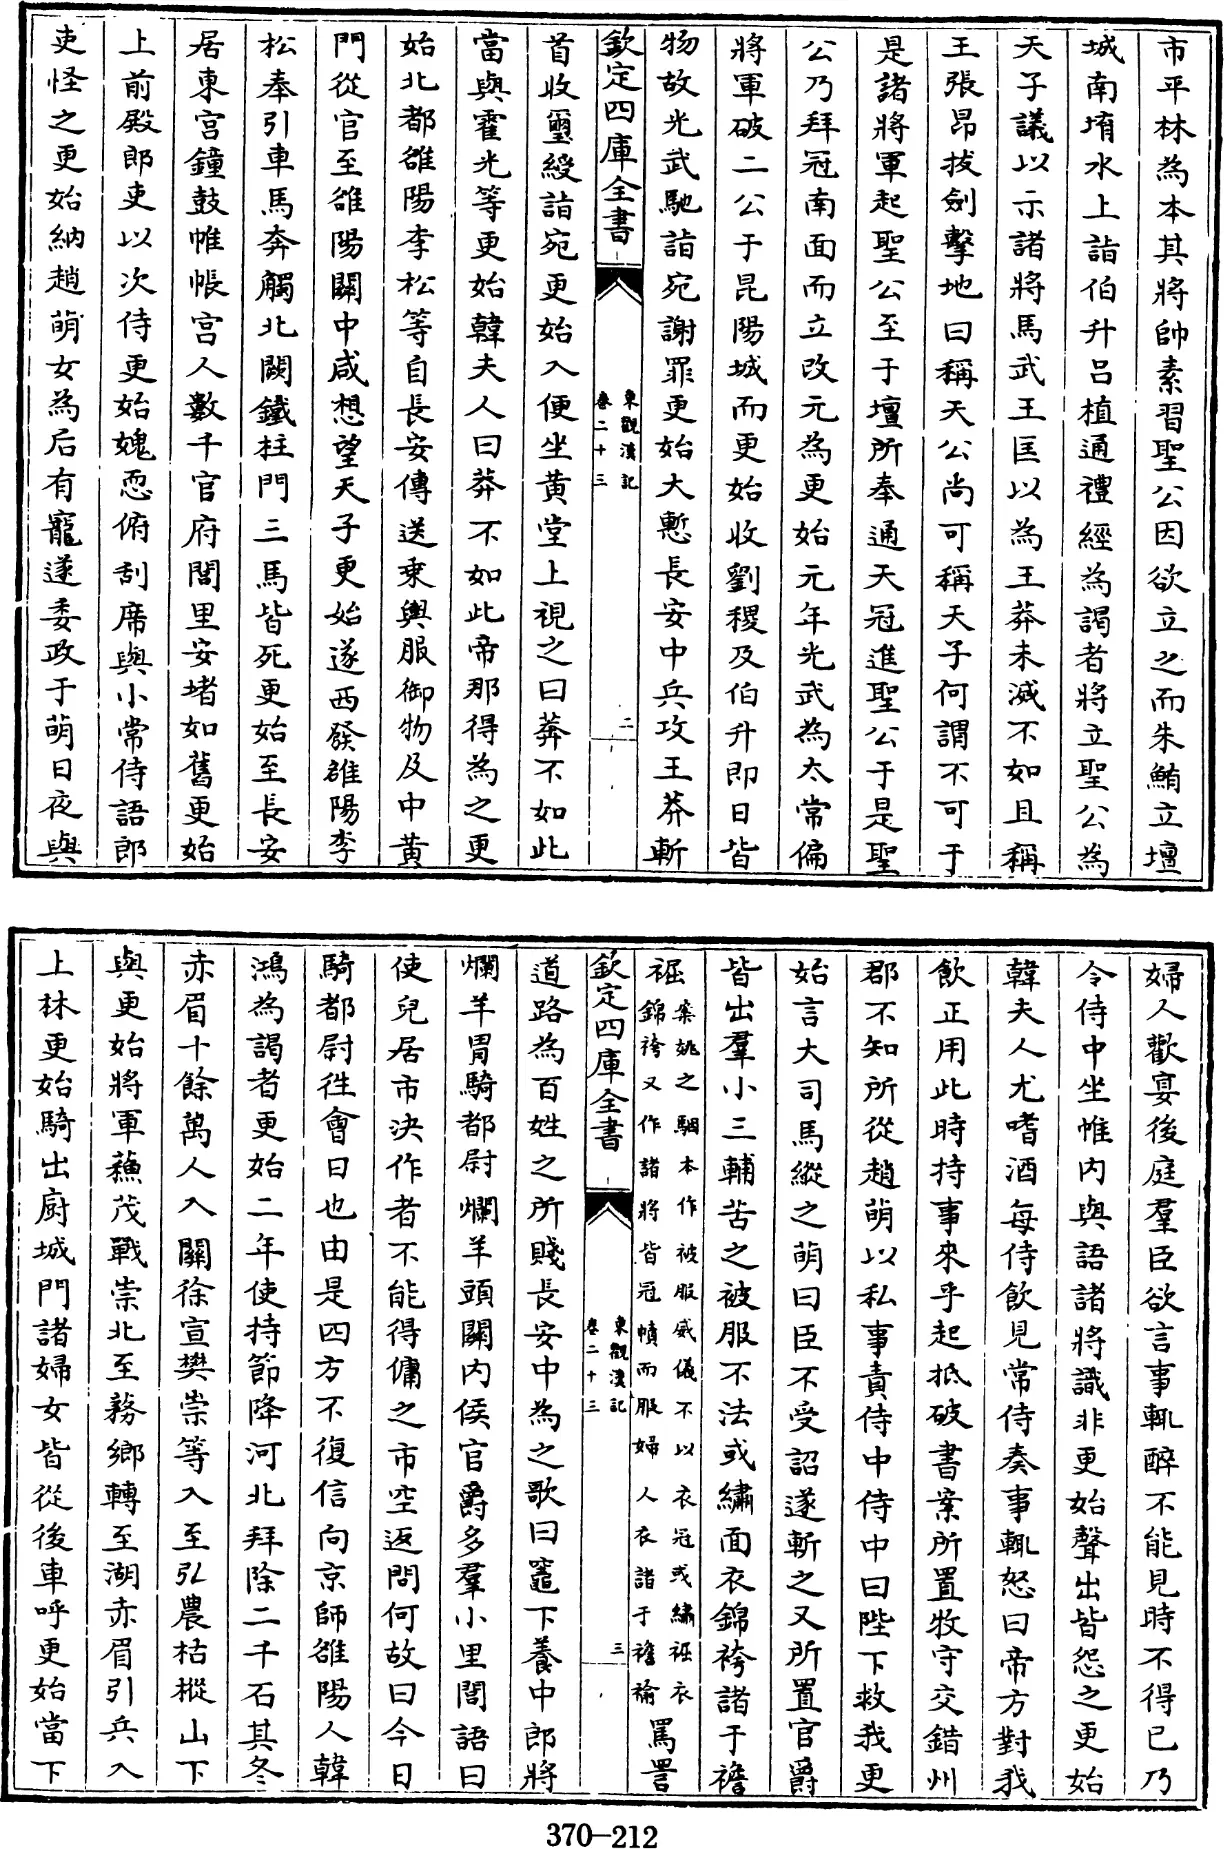 市平林為本其將帥素習聖公因欲立之而朱鮪立壇
城南堉水上詣伯升呂植通禮經為謁者將立聖公為
天子議以示諸將馬武王匡以為王莽未滅不如且稱
王張昂拔劍擊地曰稱天公尚可稱天子何謂不可于
是諸將軍起聖公至于壇所奉通天冠進聖公于是聖
公乃拜冠南面而立改元為更始元年光武為太常偏
將軍破二公于昆陽城而更始收劉稷及伯升即日皆
物故光武馳詣宛謝罪更始大慙長安中兵攻王莽斬
欽定四庫全書
東觀漢記
卷二十三
二
首收璽綬詣宛更始入便坐黄堂上視之曰莽不如此
當與霍光等更始韓夫人曰莽不如此帝那得為之更
始北都雒陽李松等自長安傳送乘輿服御物及中黄
門從官至雒陽關中咸想望天子更始遂西發雒陽李
松奉引車馬奔觸北闕鐵柱門三馬皆死更始至長安
居東宫鐘鼓帷帳宫人數千官府閭里安堵如舊更始
上前殿郎吏以次侍更始媿恧俯刮席與小常侍語郎
吏怪之更始納趙萌女為后有寵遂委政于萌日夜與
婦人歡宴後庭羣臣欲言事輒醉不能見時不得已乃
令侍中坐帷内與語諸將識非更始聲出皆怨之更始
韓夫人尤嗜酒每侍飲見常侍奏事輒怒曰帝方對我
飲正用此時持事來乎起抵破書案所置牧守交錯州
郡不知所從趙萌以私事責侍中侍中曰陛下救我更
始言大司馬縱之萌曰臣不受詔遂斬之又所置官爵
皆出羣小三輔苦之被服不法或繡面衣錦袴諸于襜
裾案姚之駰本作被服威儀不以衣冠或繡裾衣
錦袴又作諸將皆冠幘而服婦人衣諸于襜褕罵詈
欽定四庫全書
東觀漢記
卷二十三
三
道路為百姓之所賤長安中為之歌曰竈下養中郎將
爛羊胃騎都尉爛羊頭關内侯官爵多羣小里閭語曰
使兒居市决作者不能得傭之市空返問何故曰今日
騎都尉徃會日也由是四方不復信向京師雒陽人韓
鴻為謁者更始二年使持節降河北拜除二千石其冬
赤眉十餘萬人入關徐宣樊崇等入至弘農枯樅山下
與更始將軍蘓茂戰崇北至務鄉轉至湖赤眉引兵入
上林更始騎出廚城門諸婦女皆從後車呼更始當下
370-212